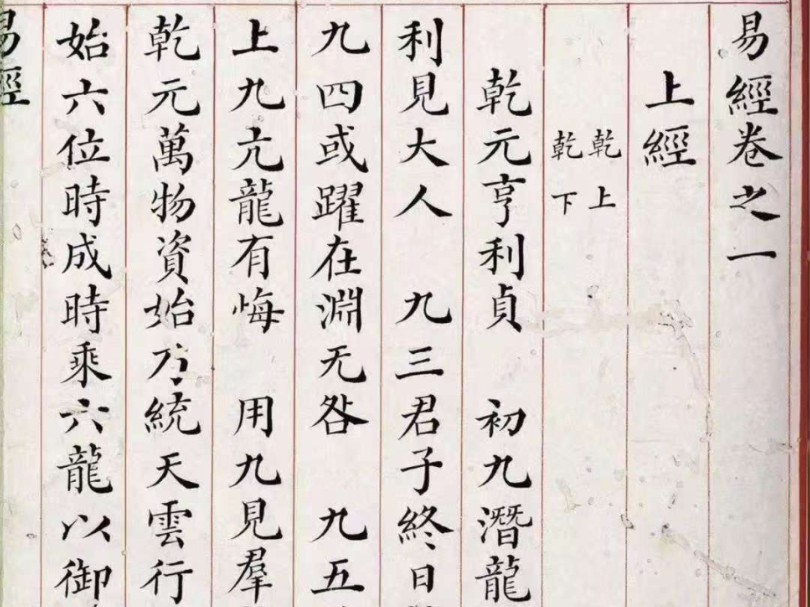 易經卷之一
上經
乾上
乾下
乾元亨利貞 初九潛龍
利見大人 九三君子終日
九四或躍在淵无咎 九五
上九亢龍有悔 用九見羣
乾元萬物資始乃統天雲行
始六位時成時乘六龍以御
易經